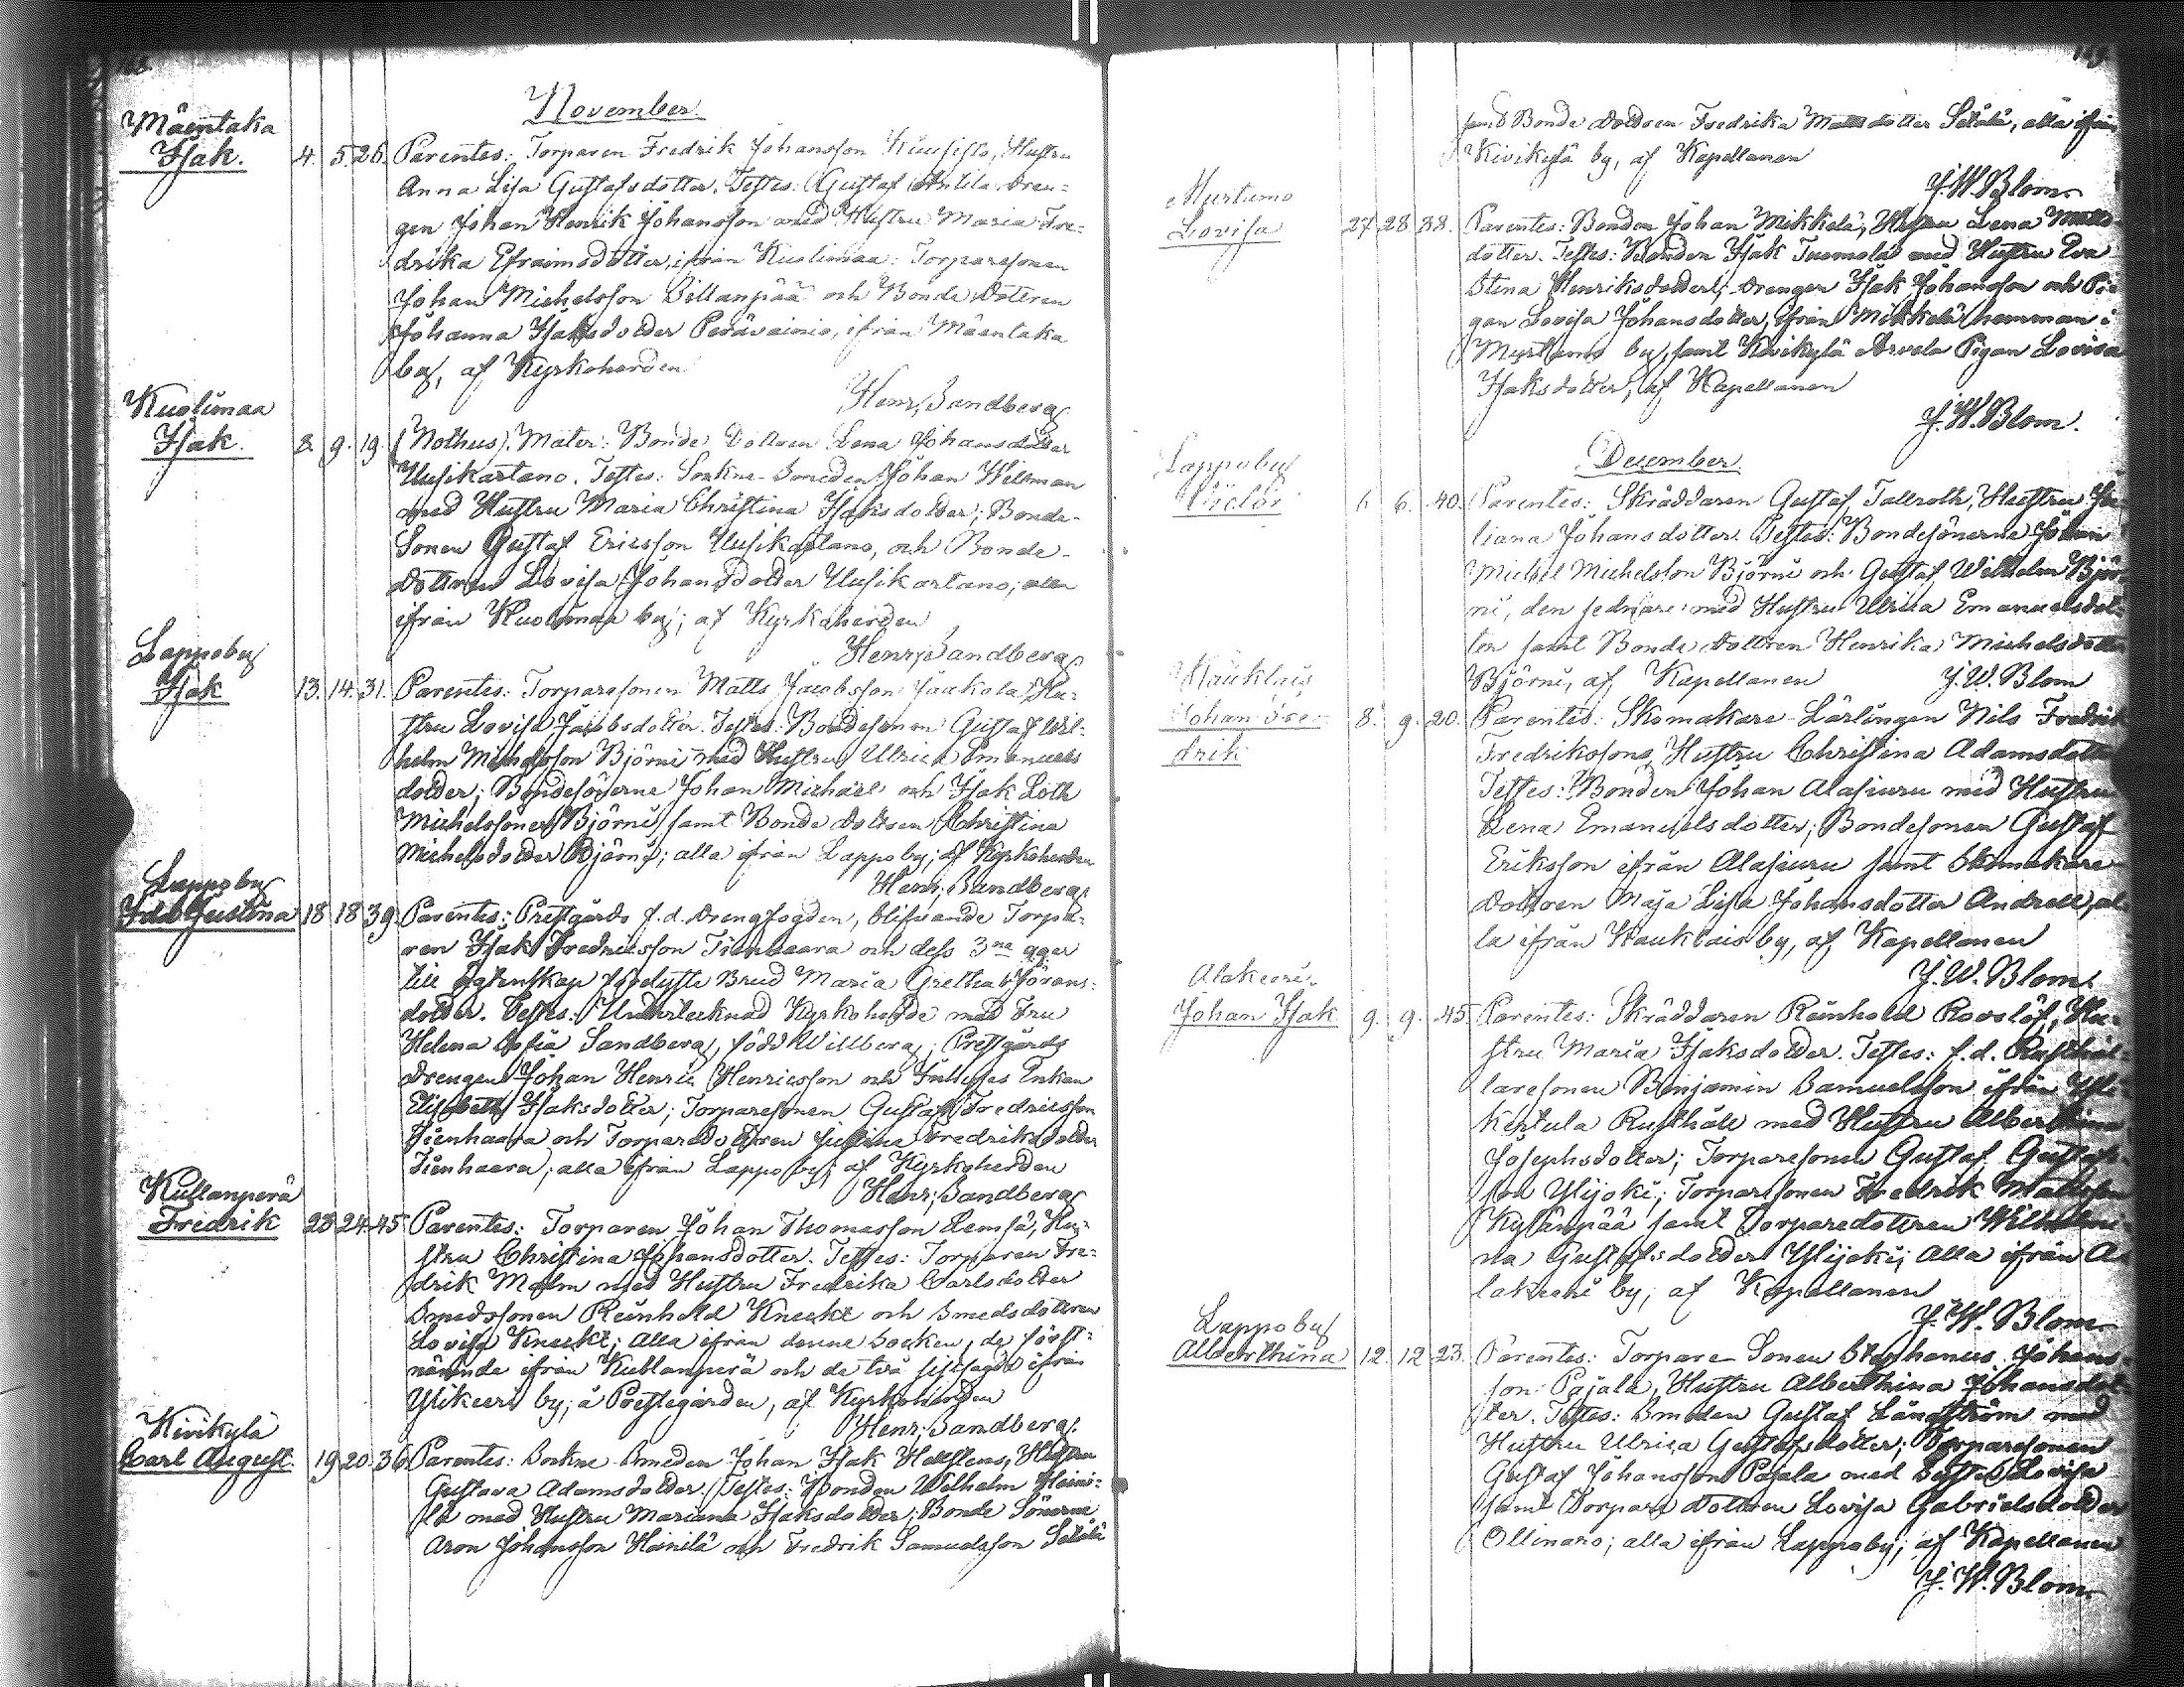 November.
Mäentaka
Isak. 4. 5. 26. Parentes: Torparen Fredrik Johansson Kuusisto, Hustru
Anna Lisa Gustafsdotter. Testes: Gustaf Antila Dren-
gen Johan Henrik Johansson med Hustru Maria Fre-
drika Efraimsdotter, ifrån Kuolimaa: Torparesonen
Johan Michelsson Sillanpää och Bonde Dottren
Johanna Isaksdotter Perävainio, ifrån Mäentaka
by, af Kyrkoherden
Henr; Sandberg
Kuolimaa
Isak. 8. 9. 19. (Nothus). Mater: Bonde Dottren Lena Johansdotter
Uusikartano. Testes: Sockne-Smeden Johan Wellman
med Hustru Maria Christina Isaksdotter; Bonde-
Sonen Gustaf Ericsson Uusikartano, och Bonde-
Dottren Lovisa Johansdotter Uusikartano; alla
ifrån Kuolimaa by; af Kyrkoherden
Henr; Sandberg
Lappoby
Isak 13. 14. 31. Parentes: Torparesonen Matts Jacobsson Jaakola, Hu-
stru Lovisa Jacobsdotter. Testes: Bondesonen Gustaf Wil-
helm Michelsson Björni med Hustru Ulrica Emanuels
dotter; Bondesönerne Johan Michael och Isak Loth
Michelssöner Björni, samt Bonde Dottren Christina
Michelsdotter Björni; alla ifrån Lappo by; af Kyrkoherden
Henr; Sandberg
Lappoby
Ida Justina 18 18 39. Parentes: Prestgårds f.d. Drengfogden, blifwande Torpa-
ren Isak Fredricsson Tienhaara och dess 3ne ggr
till Ägtenskap Brud Maria Gretha Görans-
dotter. Testes: Undertecknad Kyrkoherde med Fru
Helena Sofia Sandberg, född Willberg; Prestgårds
Drengen Johan Henric Henricsson och Enkan
Elisabeth Isaksdotter; Torparesonen Gustaf Fredricsson
Tienhaara och Torparedottren Justina Fredriksdotter
Tienhaara; alla ifrån Lappo by; af Kyrkoherden
Henr; Sandberg
Kullanperä
Fredrik 23 24 45 Parentes: Torparen Johan Thomasson Lemsä, Hu-
stru Christina Johansdotter. Testes: Torparen Fre-
drik Malm med Hustru Fredrika Carlsdotter
Smedssonen Reinhold Kneckt och Smedsdottren
Lovisa Kneckt; alla ifrån denne Socken, de först-
nämnde ifrån Kullanperä och de två sistsagde ifrån
Ylikeeri by; å Prestegården, af Kyrkoherden
Henr; Sandberg.
Kivikylä
Carl August. 19 20. 36 Parentes: Sockne Smeden Johan Isak Hellstens, Hustru
Gustava Adamsdotter. Testes: Bonden Wilhelm Heini-
lä med Hustru Mariana Isaksdotter; Bonde Sönerne
Aron Johansson Heinilä och Fredrik Samuelsson Sälilä
samt Bonde Dottren Fredrika Mattsdotter Sälilä, alla ifrån
Kivikylä by, af Kapellanen
J. W. Blom.
Murtamo
Lovisa 27 28 38. Parentes: Bonden Johan Mikkelä, Hustru Lena Matts-
dotter. Testes: Bonden Isak Tuomola med Hustru Eva
Stina Henriksdotter, Drengen Isak Johansson och Pi-
gan Lovisa Johansdotter, ifrån Mikkelä hemman i
by, samt Kivikylä Arvela Pigan Lovisa
Isaksdotter, af Kapellanen
J. W. Blom.
December.
Lappoby
Victor 6 6. 40. Parentes: Skräddaren Gustaf Tallroth, Hustru Ju-
liana Johansdotter. Testes: Bondesönerne Johan
Michel Michelsson Björni och Gustaf Wilhelm Björ-
ni, den sednare med Hustru Ulrica Emanuelsdot-
ter samt Bonde Dottren Henrika Michelsdotter
Björni, af Kapellanen J. W. Blom
Hauklais
Johan Fre- 8. 9. 20. Parentes: Skomakare Lärlingen Nils Fredrik
drik Fredrikssons, Hustru Christina Adamsdotter
Testes: Bonden Johan Alasiuru med Hustru
Lena Emanuelsdotter; Bondesonen Gustaf
Eriksson ifrån Alasiuru samt Skomakare
Dottren Maja Lisa Johansdotter Andrell, al-
la ifrån Hauklais by, af Kapellanen
J. W. Blom.
Alakeeri
Johan Isak 9. 9. 45 Parentes: Skräddaren Reinhold Roslöf, Hu-
stru Maria Isaksdotter. Testes: f.d. Rusthål-
laresonen Benjamin Samuelsson ifrån Yli-
Kertula Rusthåll med Hustru Albertina
Josephsdotter; Torparesonen Gustaf Gustafs-
son Ylijoki; Torparesonen Fredrik Mattsson
Kylänpää samt Torparedottren Wilhelmi-
na Gustafsdotter Ylijoki; alla ifrån A-
lakeeri by, af Kapellanen
J. W. Blom
Lappoby
Alberthina 12. 12 23. Parentes: Torpare-Sonen Stephanus Johans-
son Pajala, Hustru Alberthina Johansdot-
ter. Testes: Smeden Gustaf Långström med
Hustru Ulrica Gustafsdotter; Torparesonen
Gustaf Johansson Pajala med Syster Lovisa
samt Torpare Dottren Lovisa Gabrielsdotter
Ollinaro; alla ifrån Lappo by; af Kapellanen
J. W. Blom